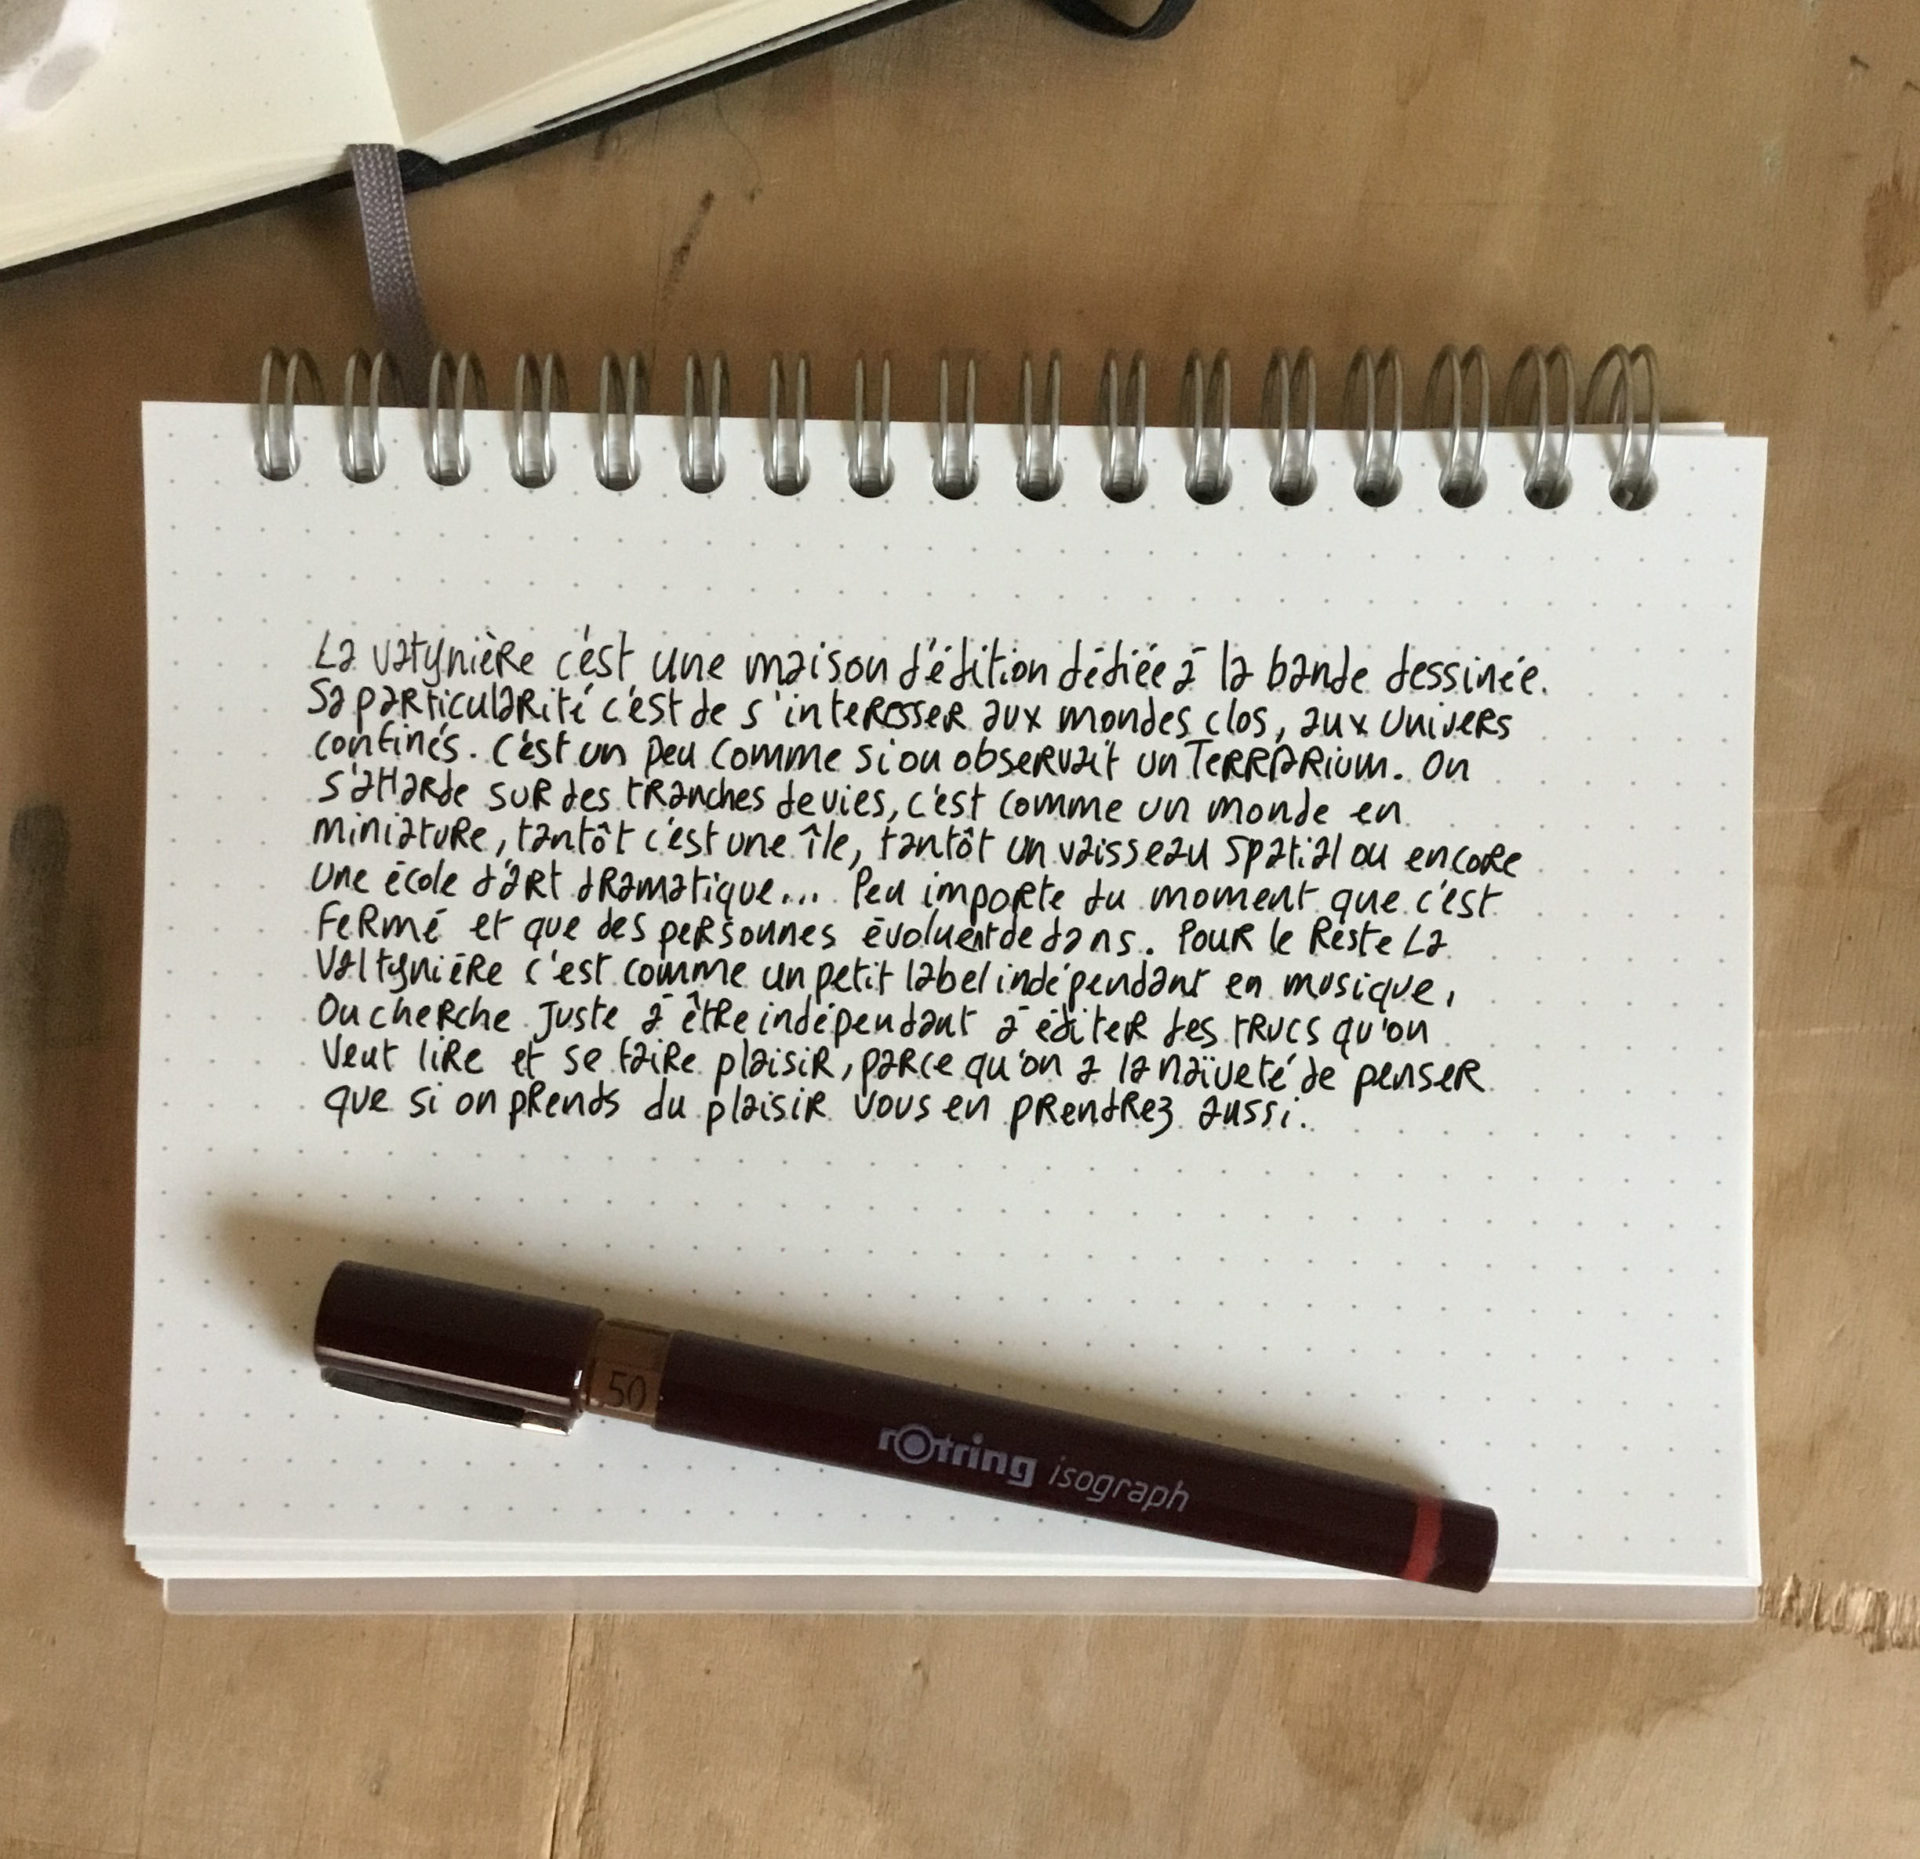 La vatynière c'est une maison d'édition dédiée à la bande dessinée.
Sa particularité c'est de s'interesser aux mondes clos, aux univers
confinés. C'est un peu comme si on observait un Terrarium. On
s'attarde sur des tranches de vies, c'est comme un monde en
miniature, tantôt c'est une île, tantôt un vaisseau spatial ou encore
une école d'art dramatique... Peu importe du moment que c'est
fermé et que des personnes évoluent dedans. Pour le reste La
Valtynière c'est comme un petit label indépendant en musique,
On cherche juste à être indépendant à éditer des trucs qu'on
veut lire et se faire plaisir, parce qu'on a la naïveté de penser
que si on prends du plaisir vous en prendrez aussi.
.50
rotring isograph